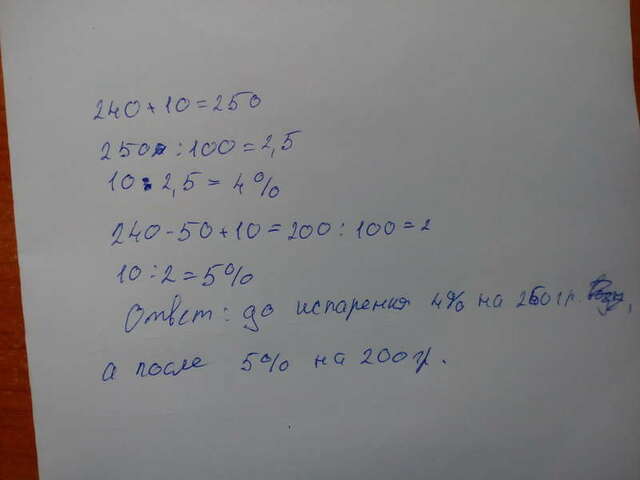 240 + 10 = 250
250 : 100 = 2,5
10 : 2,5 = 4%
240 - 50 + 10 = 200 : 100 = 2
10 : 2 = 5%
Ответ: до испарения 4% на 250 гр.
а после 5% на 200 гр.